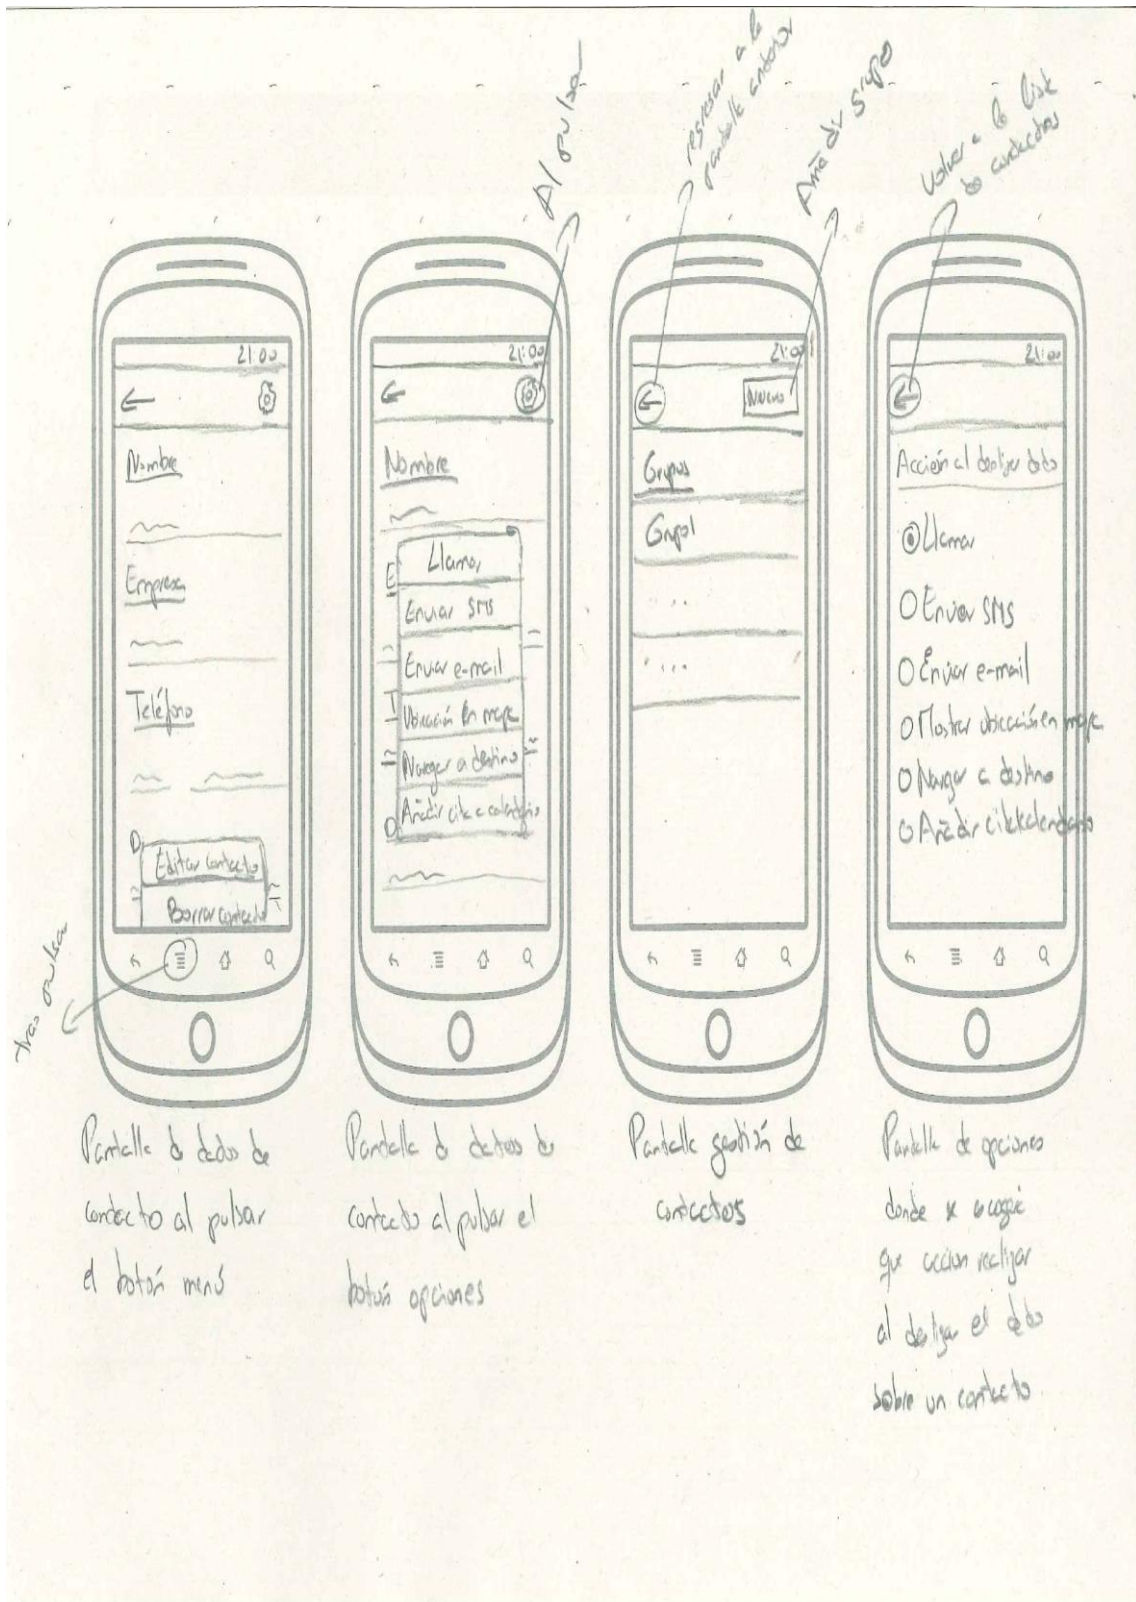 Al pulsar
regresar a la
pantalla anterior
Añadir grupo
Volver a la lista
de contactos
21:00
Nombre
Empresa
Teléfono
D
Editar contacto
Borrar contacto
Tras pulsar
Pantalla de datos de
contacto al pulsar
el botón menú
21:00
Nombre
E
Llamar
Enviar SMS
Enviar e-mail
T
Ubicación en mapa
Navegar a destino
Añadir cita a calendario
D
Pantalla de datos de
contacto al pulsar el
botón opciones
21:00
Nuevo
Grupos
Grupo1
....
....
Pantalla gestión de
contactos
21:00
Acción al deslizar dedo
Llamar
Enviar SMS
Enviar e-mail
Mostrar ubicación en mapa
Navegar a destino
Añadir cita calendario
Pantalla de opciones
donde se escoge
que accion realizar
al deslizar el dedo
sobre un contacto